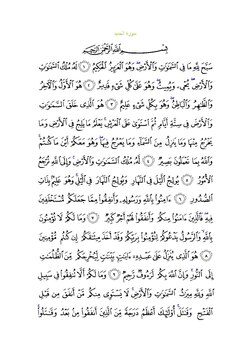 سورة الحديد
بِسْمِ اللَّهِ الرَّحْمَٰنِ الرَّحِيمِ
سَبَّحَ لِلَّهِ مَا فِي السَّمَٰوَٰتِ وَالْأَرْضِ وَهُوَ الْعَزِيزُ الْحَكِيمُ ١ لَهُ مُلْكُ السَّمَٰوَٰتِ
وَالْأَرْضِ يُحْيِي وَيُمِيتُ وَهُوَ عَلَىٰ كُلِّ شَيْءٍ قَدِيرٌ ٢ هُوَ الْأَوَّلُ وَالْآخِرُ
وَالظَّٰهِرُ وَالْبَاطِنُ وَهُوَ بِكُلِّ شَيْءٍ عَلِيمٌ ٣ هُوَ الَّذِي خَلَقَ السَّمَٰوَٰتِ
وَالْأَرْضَ فِي سِتَّةِ أَيَّامٍ ثُمَّ اسْتَوَىٰ عَلَى الْعَرْشِ يَعْلَمُ مَا يَلِجُ فِي الْأَرْضِ وَمَا
يَخْرُجُ مِنْهَا وَمَا يَنزِلُ مِنَ السَّمَاءِ وَمَا يَعْرُجُ فِيهَا وَهُوَ مَعَكُمْ أَيْنَ مَا كُنتُمْ
وَاللَّهُ بِمَا تَعْمَلُونَ بَصِيرٌ ٤ لَهُ مُلْكُ السَّمَٰوَٰتِ وَالْأَرْضِ وَإِلَى اللَّهِ تُرْجَعُ
الْأُمُورُ ٥ يُولِجُ الَّيْلَ فِي النَّهَارِ وَيُولِجُ النَّهَارَ فِي الَّيْلِ وَهُوَ عَلِيمٌ بِذَاتِ
الصُّدُورِ ٦ ءَامِنُوا بِاللَّهِ وَرَسُولِهِ وَأَنفِقُوا مِمَّا جَعَلَكُم مُّسْتَخْلَفِينَ
فِيهِ فَالَّذِينَ ءَامَنُوا مِنكُمْ وَأَنفَقُوا لَهُمْ أَجْرٌ كَبِيرٌ ٧ وَمَا لَكُمْ لَا تُؤْمِنُونَ
بِاللَّهِ وَالرَّسُولُ يَدْعُوكُمْ لِتُؤْمِنُوا بِرَبِّكُمْ وَقَدْ أَخَذَ مِيثَٰقَكُمْ إِن كُنتُم مُّؤْمِنِينَ
٨ هُوَ الَّذِي يُنَزِّلُ عَلَىٰ عَبْدِهِ ءَايَٰتٍ بَيِّنَٰتٍ لِّيُخْرِجَكُم مِّنَ الظُّلُمَٰتِ
إِلَى النُّورِ وَإِنَّ اللَّهَ بِكُمْ لَرَءُوفٌ رَّحِيمٌ ٩ وَمَا لَكُمْ أَلَّا تُنفِقُوا فِي سَبِيلِ
اللَّهِ وَلِلَّهِ مِيرَٰثُ السَّمَٰوَٰتِ وَالْأَرْضِ لَا يَسْتَوِي مِنكُم مَّنْ أَنفَقَ مِن قَبْلِ
الْفَتْحِ وَقَٰتَلَ أُولَٰئِكَ أَعْظَمُ دَرَجَةً مِّنَ الَّذِينَ أَنفَقُوا مِن بَعْدُ وَقَٰتَلُوا